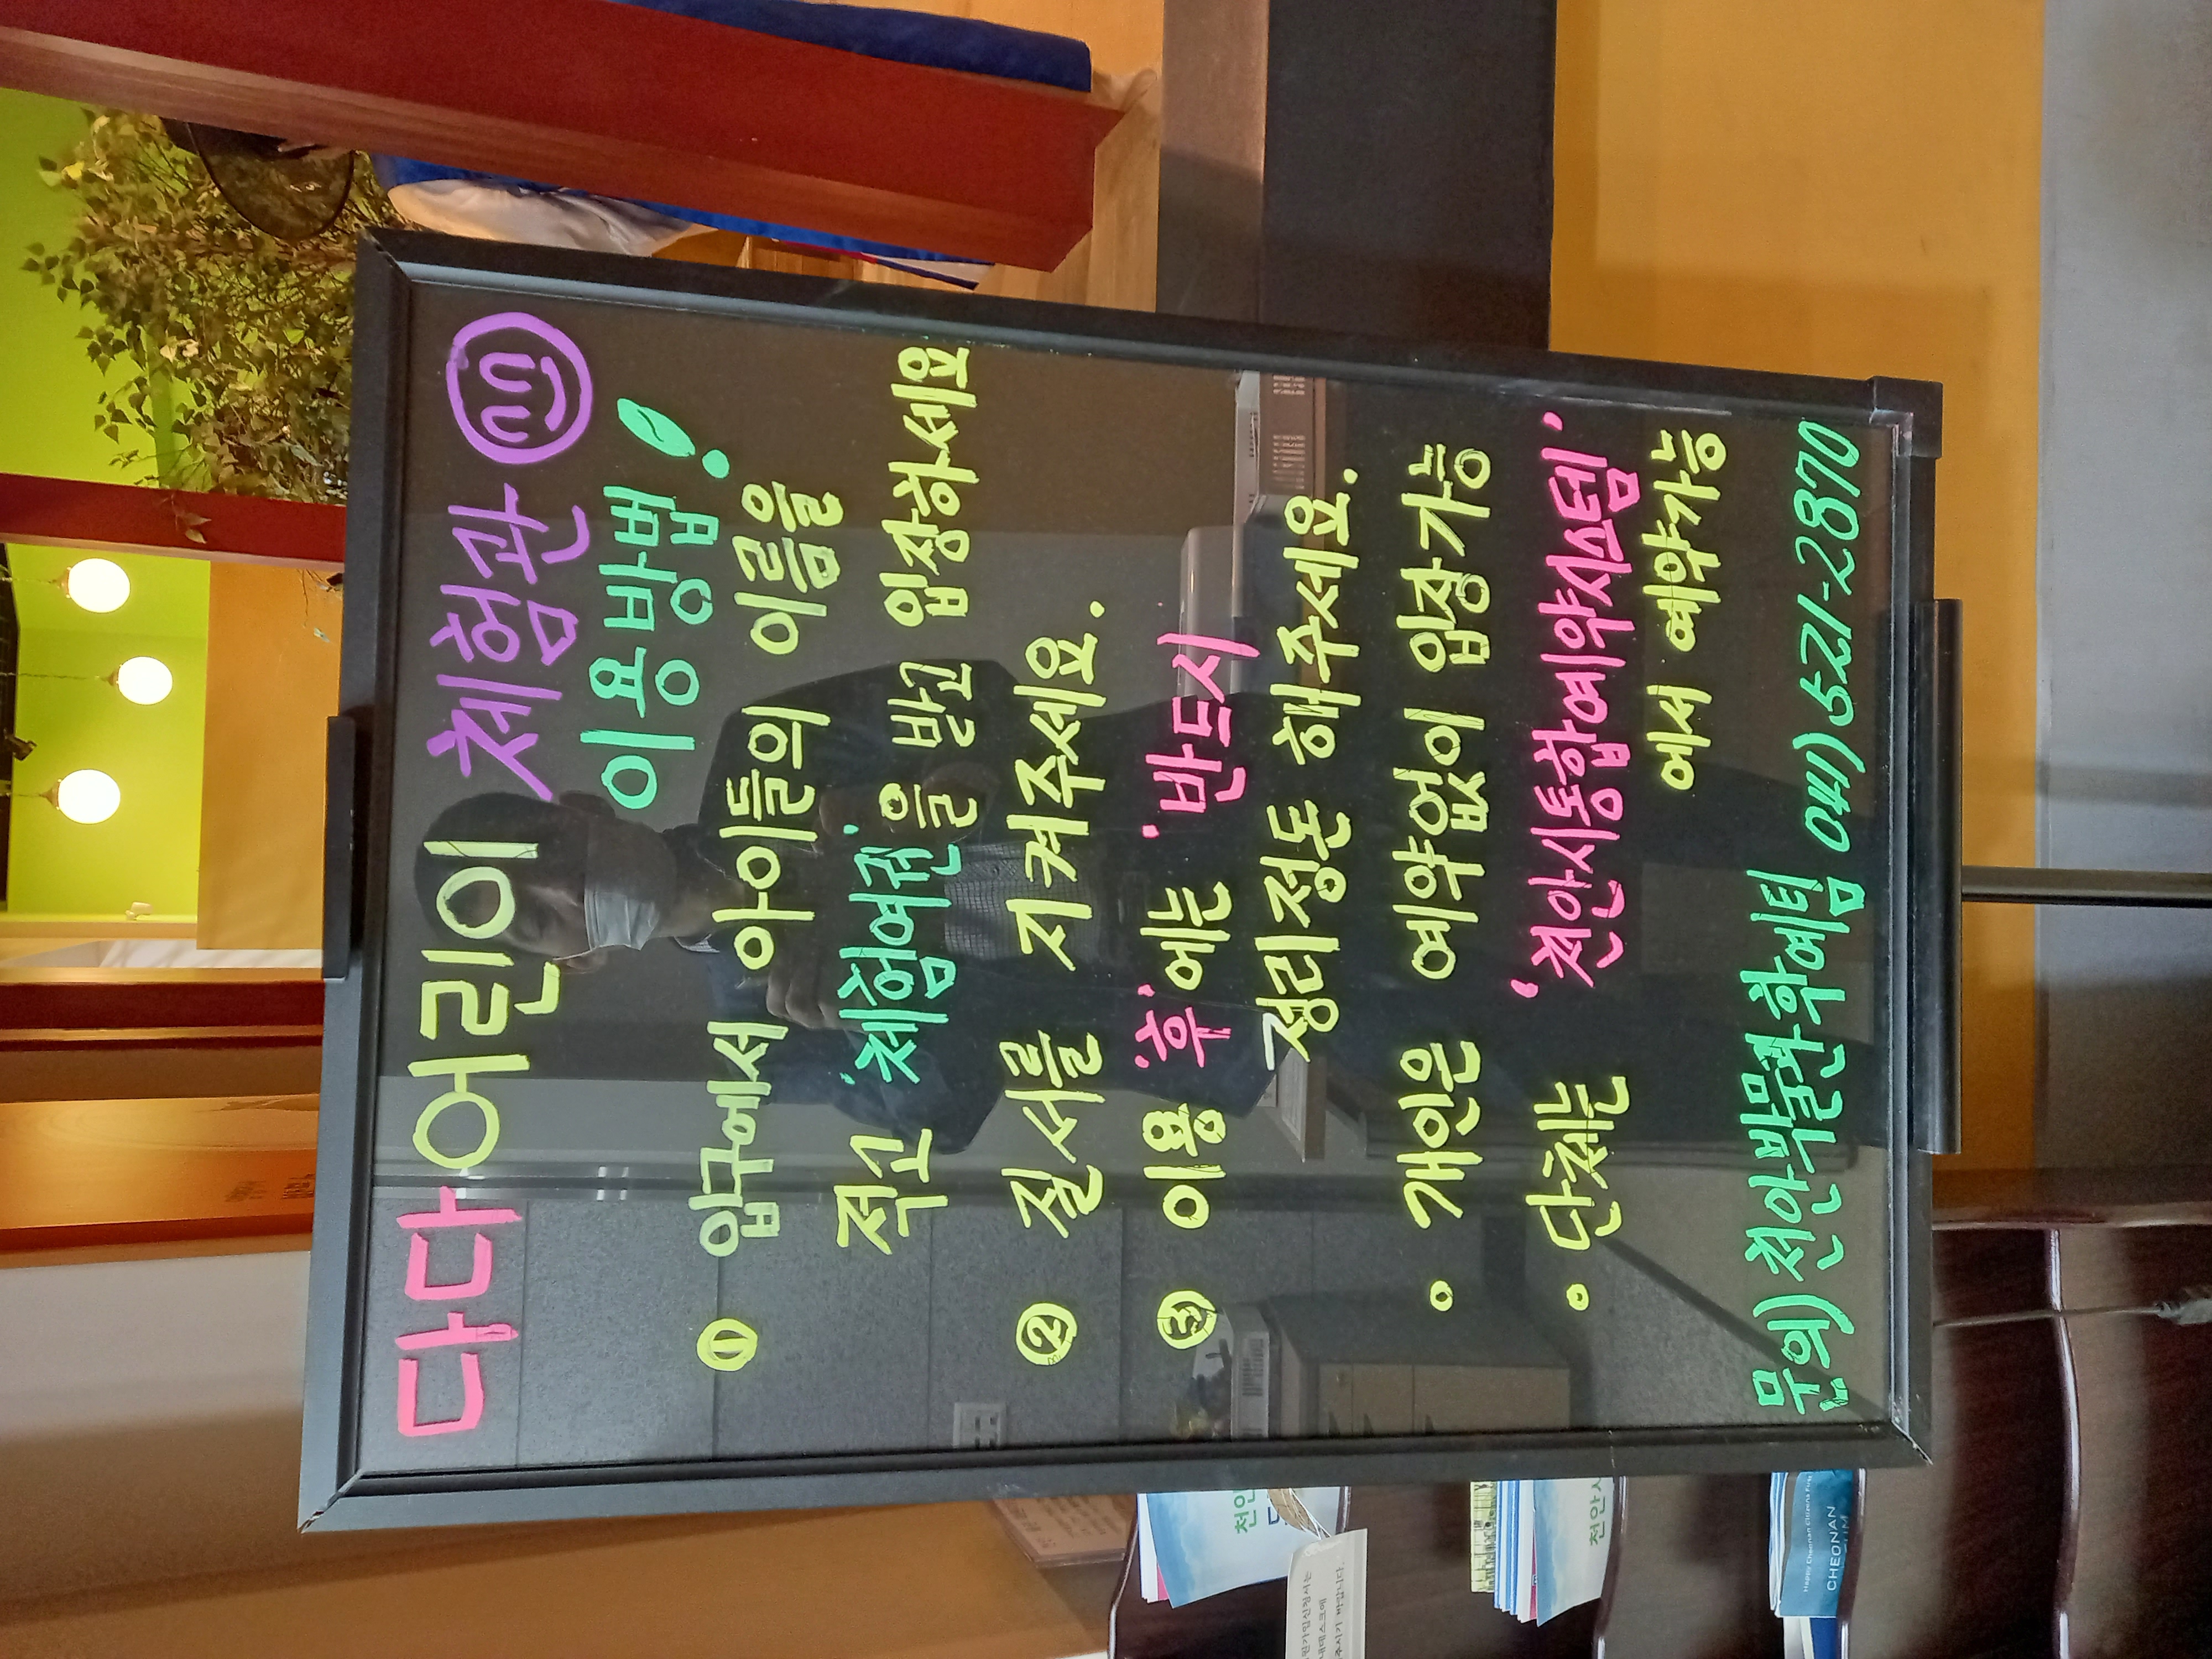 다다 어린이 체험관
이용방법!
① 입구에서 아이들의 이름을
적고 '체험여권'을 받고 입장하세요
② 질서를 지켜주세요.
③ 이용 '후'에는 '반드시
정리정돈 해주세요.
• 개인은 예약없이 입장가능
• 단체는 '천안시통합예약시스템'
에서 예약가능
문의) 천안박물관 학예팀 041) 521-2870
천안
천안시
Happy Cheonan Citizens
CHEONAN